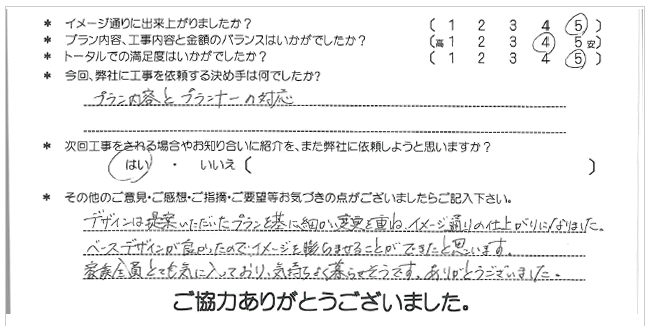 * イメージ通りに出来上がりましたか? ( 1 2 3 4 5 )
* プラン内容、工事内容と金額のバランスはいかがでしたか? (高 1 2 3 4 5 安)
* トータルでの満足度はいかがでしたか? ( 1 2 3 4 5 )
* 今回、弊社に工事を依頼する決め手は何でしたか?
プラン内容とプランナーの対応
* 次回工事をされる場合やお知り合いに紹介を、また弊社に依頼しようと思いますか?
はい ・ いいえ ( )
* その他のご意見・ご感想・ご指摘・ご要望等お気づきの点がございましたらご記入下さい。
デザインは提案いただいたプランを基に細かい変更を重ね、イメージ通りの仕上がりになりました。
ベースデザインが良かったので、イメージを膨らませることができたと思います。
家族全員とても気に入っており、気持ちよく暮らせそうです。ありがとうございました。
ご協力ありがとうございました。